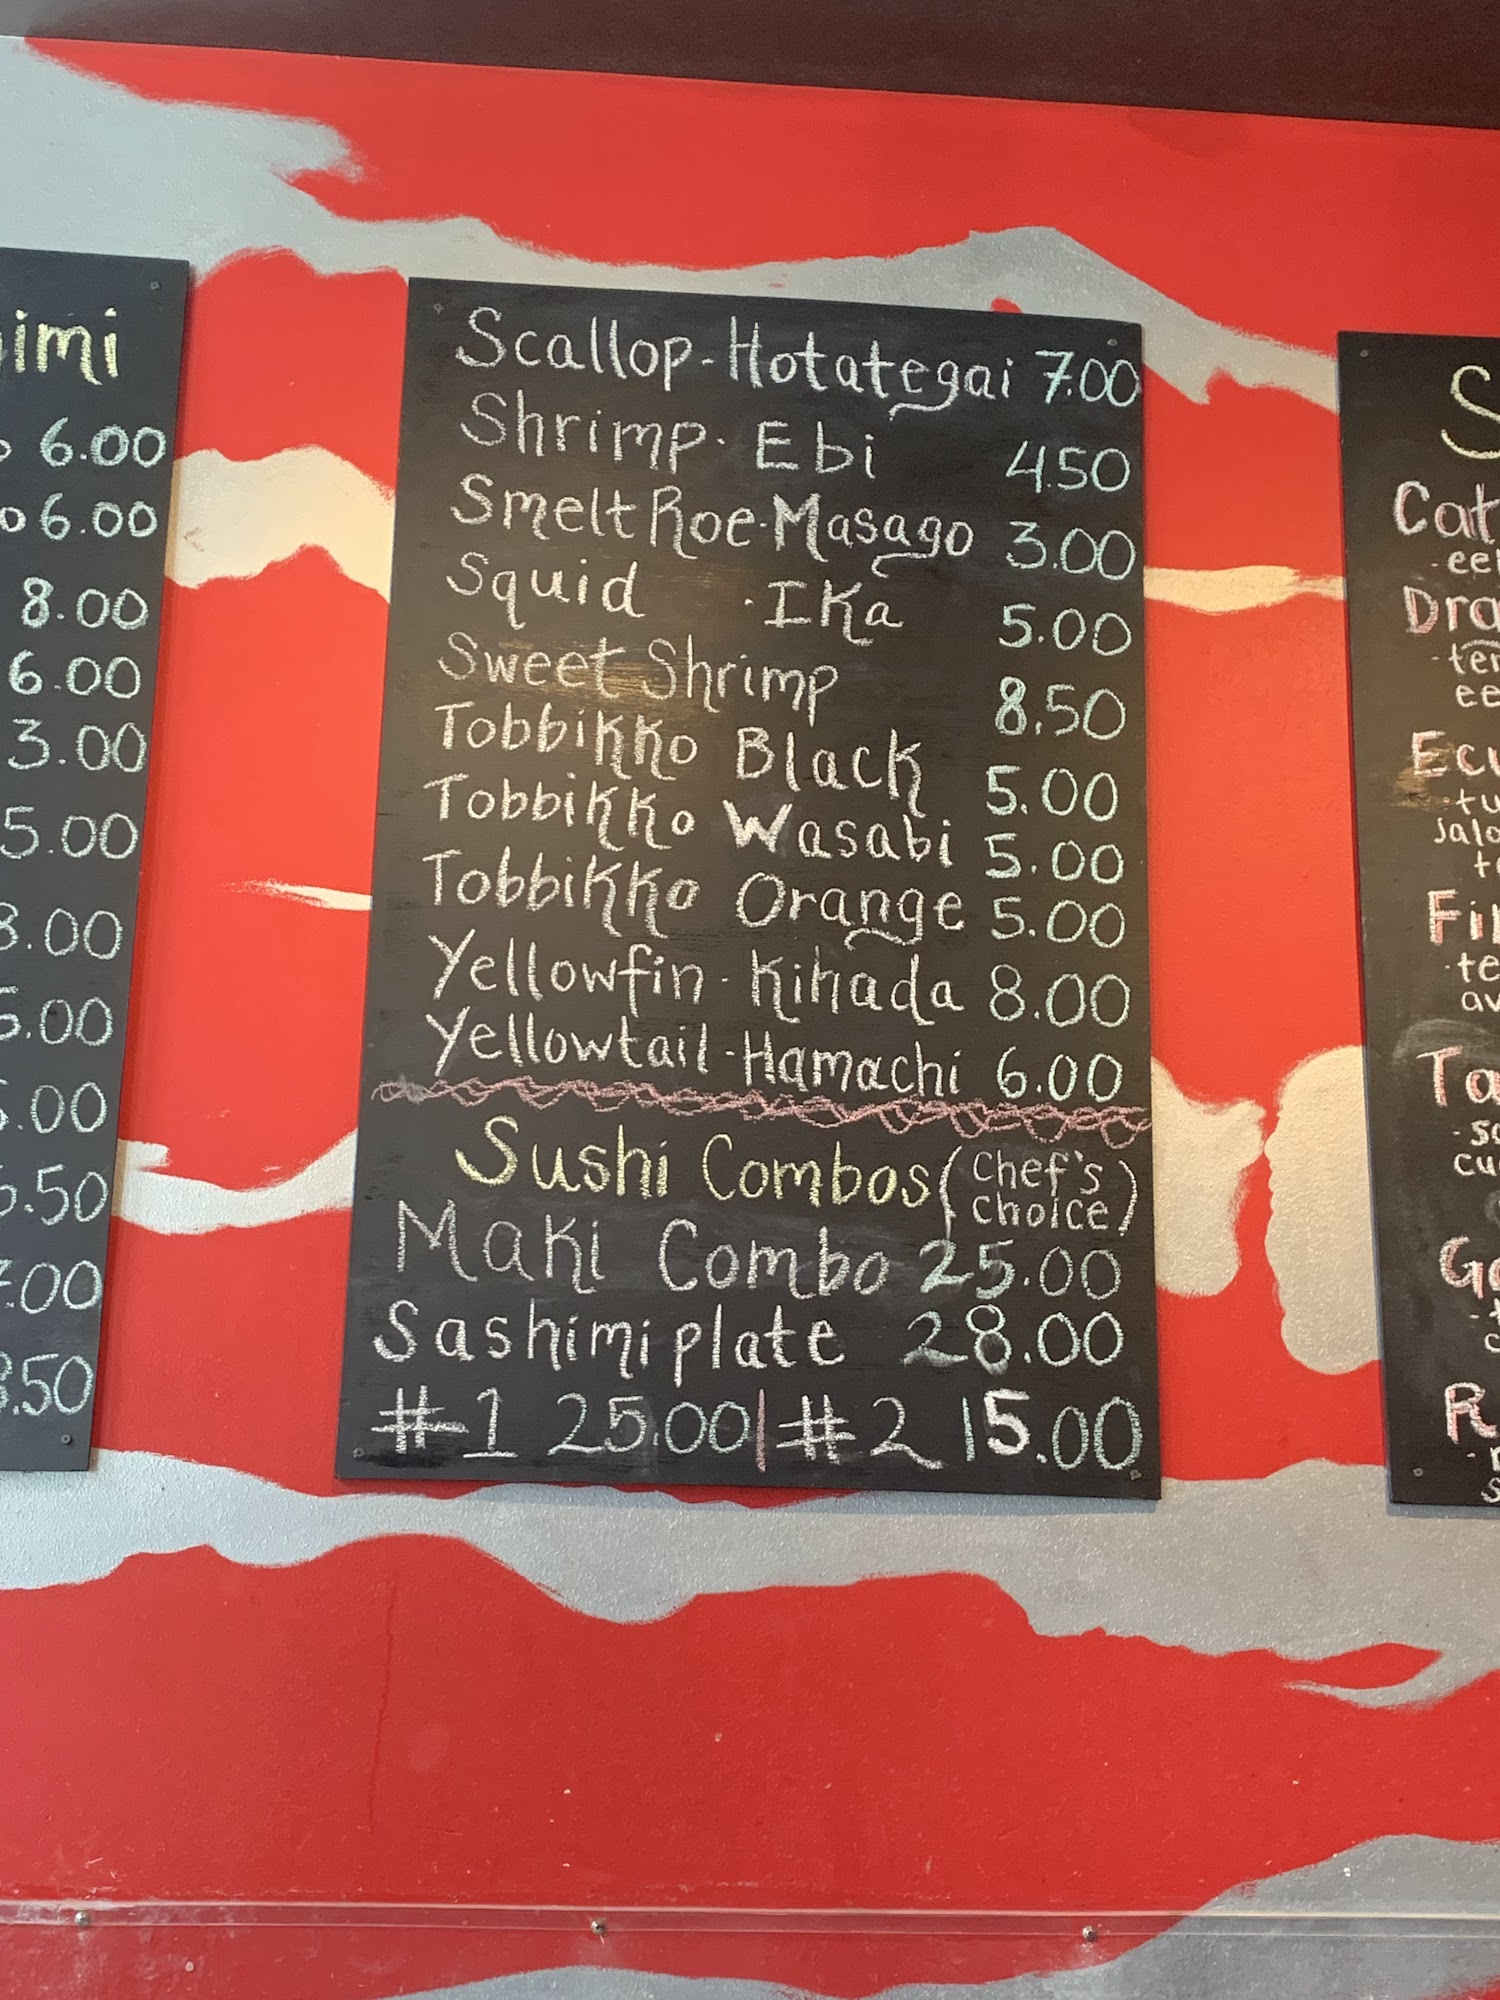 6.00
6.00
8.00
6.00
3.00
5.00
8.00
.00
.00
.50
.00
.50
Scallop-Hotategai 7.00
Shrimp-Ebi 4.50
Smelt Roe-Masago 3.00
Squid -Ika 5.00
Sweet Shrimp 8.50
Tobbikko Black 5.00
Tobbikko Wasabi 5.00
Tobbikko Orange 5.00
Yellowfin-Kihada 8.00
Yellowtail-Hamachi 6.00
Sushi Combos (Chef's Choice)
Maki Combo 25.00
Sashimi plate 28.00
#1 25.00|#2 15.00